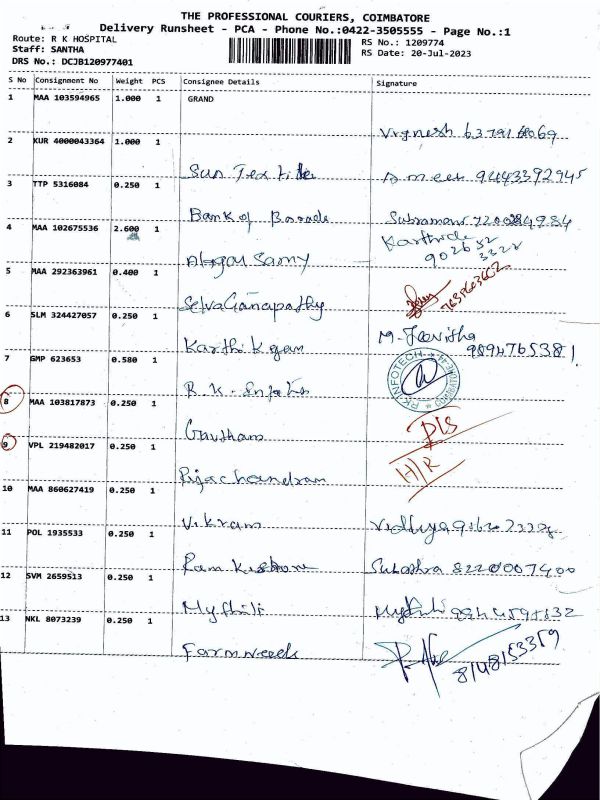 THE PROFESSIONAL COURIERS, COIMBATORE
Delivery Runsheet - PCA - Phone No.:0422-3505555 - Page No.:1
Route: R K HOSPITAL
Staff: SANTHA
DRS No.: DCJB120977401
RS No.: 1209774
RS Date: 20-Jul-2023
S No Consignment No Weight PCS Consignee Details Signature
1 MAA 103594965 1.000 1 GRAND
Vignesh
2 KUR 4000043364 1.000 1
Sun Textile
3 TTP 5316084 0.250 1
Bank of Baroda
4 MAA 102675536 2.600 1
Karthick
902632
3322
Alagar Samy
5 MAA 292363961 0.400 1
Selva Ganapathy
6 SLM 324427057 0.250 1
Karthikeyan M. Jeevitha
9894765381
7 GMP 623653 0.580 1
R.K - Infotech
RK INFOTECH
8 MAA 103817873 0.250 1
Gautham D/S
9 VPL 219482017 0.250 1
H/R
Rajachandran
10 MAA 860627419 0.250 1
Vikram Vidhya
11 POL 1935533 0.250 1
Ram Kishore 8220007400
12 SVM 2659513 0.250 1
Mythili
13 NKL 8073239 0.250 1
Farm needs 8148153359